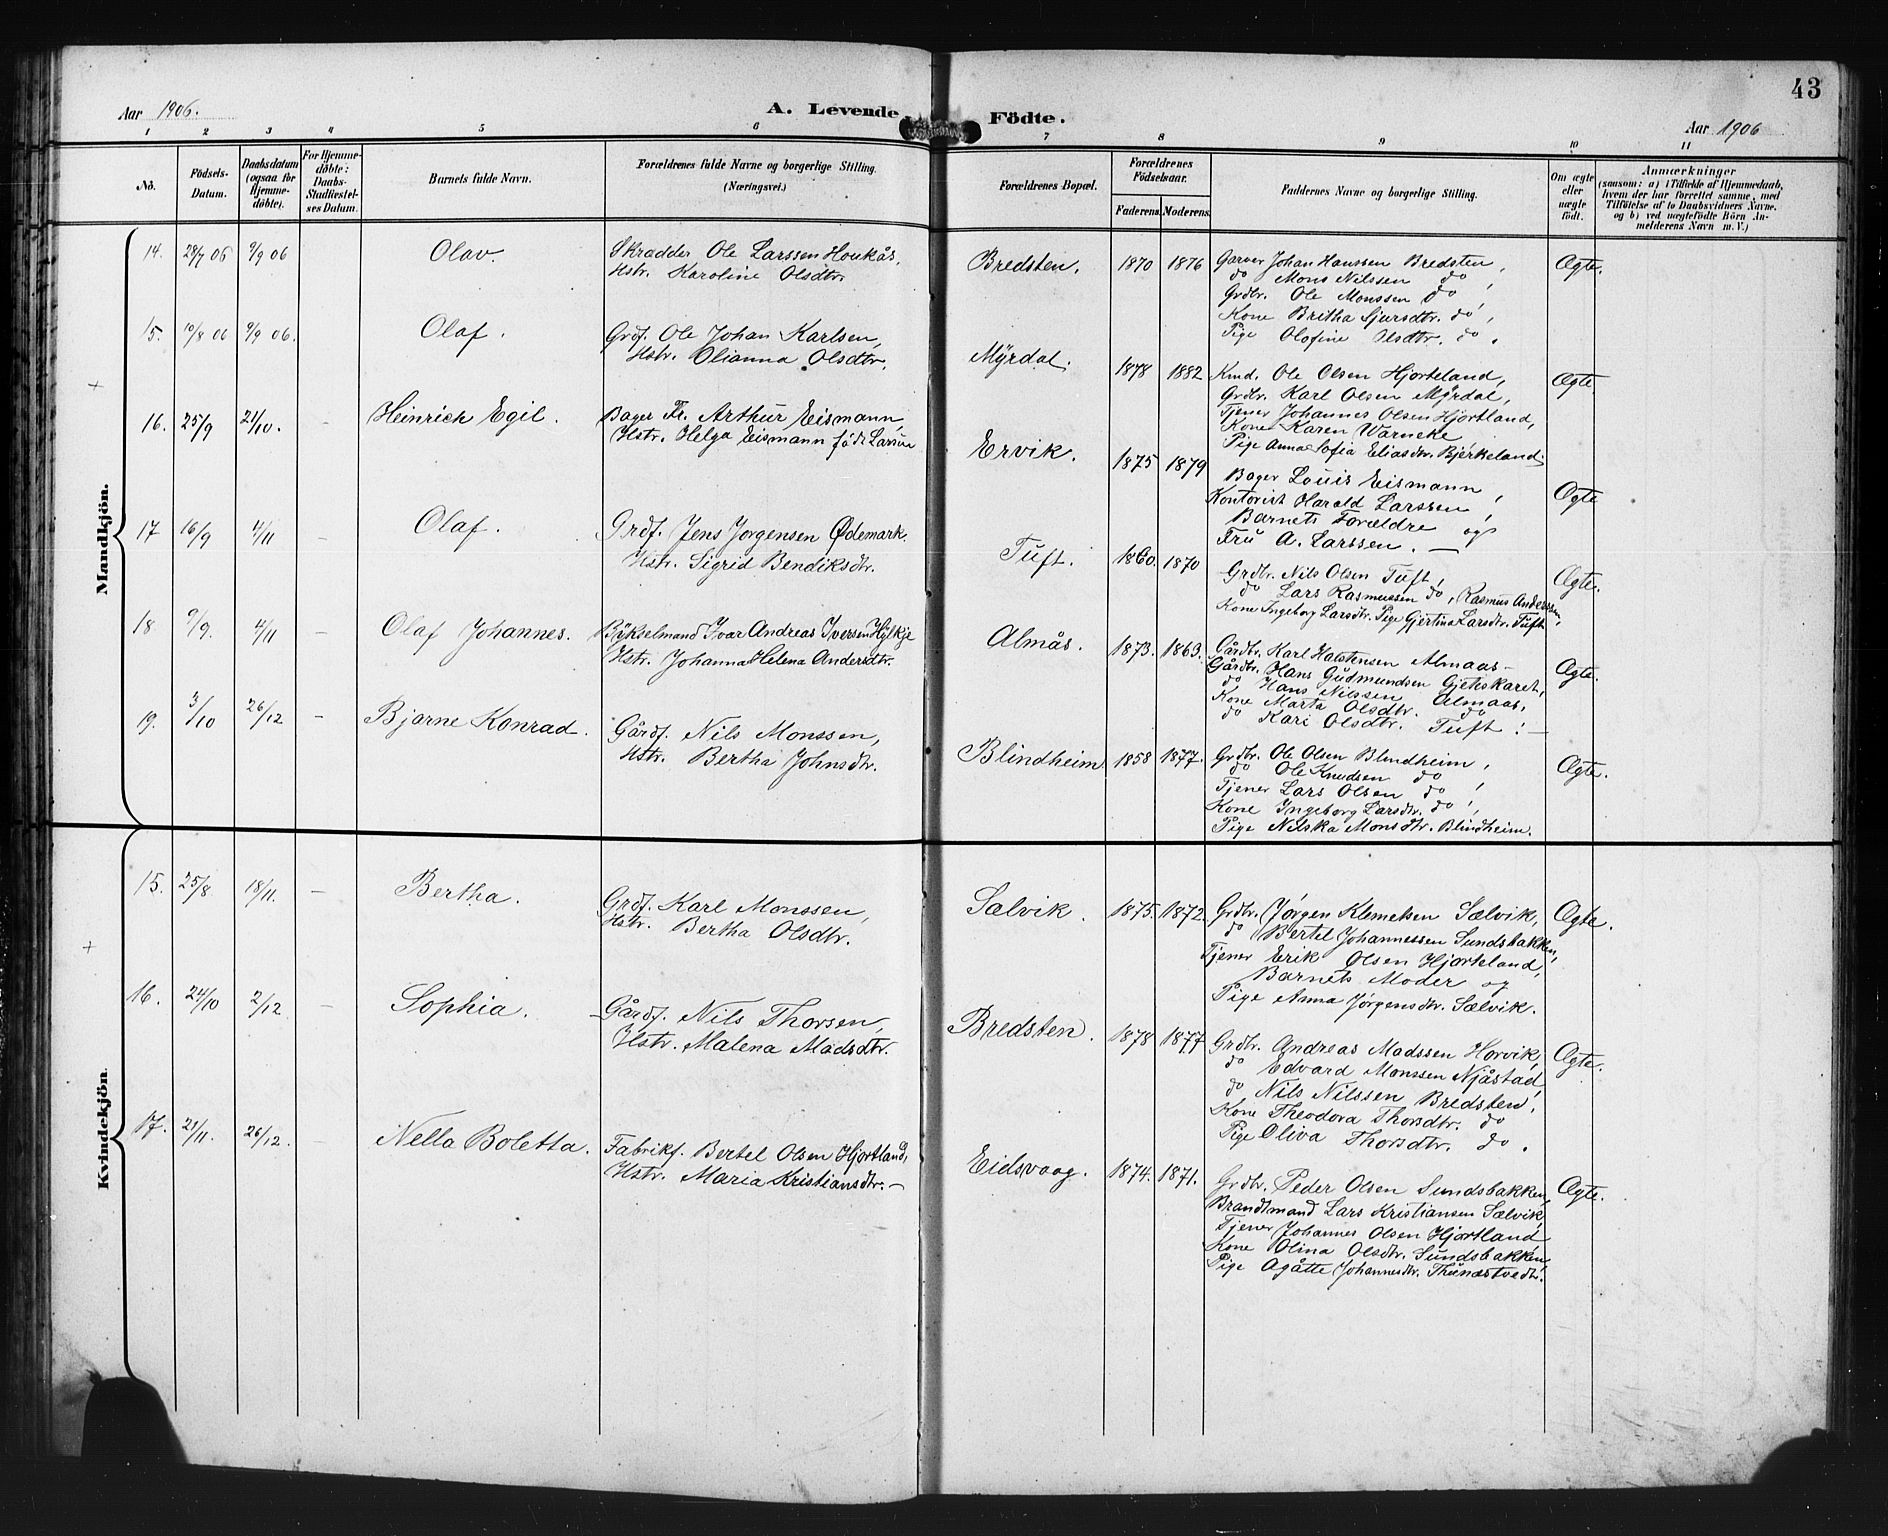 43
Aar 1906.
A. Levende Födte.
Aar 1906
1 2 3 4 5 6 7 8 9 10 11
No.
Födsels-Datum.
Daabsdatum (ogsaa for Hjemmedöbte).
For Hjemmedöbte: Daabs-Stadfæstelses Datum.
Barnets fulde Navn.
Forældrenes fulde Navne og borgerlige Stilling. (Næringsvei.)
Forældrenes Bopæl.
Forældrenes Födselsaar.
Faderens. Moderens.
Faddernes Navne og borgerlige Stilling.
Om ægte eller uægte födt.
Anmærkninger
(saasom: a) i Tilfælde af Hjemmedaab, hvem der har forrettet samme, med Tilföielse af to Daabsvidners Navne. og b) ved uægtefödte Börn Anmelderens Navn m. V.)
Mandkjön.
14. 28/7 06 9/9 06 Olav.
Skrædder Ole Larssen Houkås,
Hstr. Karoline Olsdtr.
Bredsten. 1870 1876
Garver Johan Hanssen Bredsten,
do Mons Nilssen do,
Grdbr. Ole Monssen do
Kone Britha Sjursdtr. do,
Pige Olofine Olsdtr. do.
Ægte.
15. 10/8 06 9/9 06. Olaf.
Grdf. Ole Johan Karlsen,
Hstr. Olianna Olsdtr.
Myrdal. 1878 1882
Kmd. Ole Olsen Hjorteland,
Grdbr. Karl Olsen Myrdal,
Tjener Johannes Olsen Hjortland,
Kone Karen Warneke
Pige Anna Sofia Eliasdtr. Bjerkeland.
Ægte
16. 25/9 21/10. - Heinrich Egil.
Bager Fr. Arthur Eismann,
Hstr. Helga Eismann föd
Ervik. 1875 1879
Bager Louis Eismann,
Kontorist Harald Larssen,
Barnets Forældre og
Fru A. Larssen. —
Ægte
17 16/9 4/11 - Olaf.
Grdf. Jens Jørgensen Ødemark.
Hstr. Sigrid Bendiksdtr.
Tuft. 1860. 1870
Grdbr. Nils Olsen Tuft,
do Lars Rasmussen do, Rasmus Anderssen,
Kone Ingeborg Larsdtr. Pige Gjertina Larsdtr. Tuft
Ægte.
18. 9/9. 4/11 - Olaf Johannes.
Bykselmand Ivar Andreas Iversen Hylkje
Hstr. Johanna Helena Andersdtr.
Almås. 1873. 1863.
Gårdbr. Karl Halstensen Almaas -
Gårdbr. Hans Gudmundsen Gjetskaret,
do Hans Nilssen Almaas,
Kone Marta Olsdtr. do
do Kari Olsdtr. Tuft. -
Ægte.
19. 3/10 26/12 - Bjarne Konrad.
Gårdf. Nils Monssen,
Hstr. Bertha Johnsdtr.
Blindheim 1858 1877.
Grdbr. Ole Olsen Blindheim,
do Ole Knudsen do
Tjener Lars Olsen do,
Kone Ingeborg Larsdtr. do,
Pige Nilska Monsdtr. Blindheim.
Ægte.
Kvindekjön
15. 25/8. 18/11. - Bertha.
Grdf. Karl Monssen,
Hstr. Bertha Olsdtr.
Sælvik. 1875. 1872.
Grdbr. Jørgen Klemetsen Sælvik,
do Bertel Johannessen Sundsbakken,
Tjener Erik Olsen Hjorteland,
Barnets Moder og
Pige Anna Jørgensdtr. Sælvik.
Ægte.
16. 24/10 2/12 - Sophia.
Gårdf. Nils Thorsen,
Hstr. Malena Madsdtr.
Bredsten. 1878 1877
Grdbr. Andreas Madssen Horvik,
do Edvard Monssen Njåstad,
do Nils Nilssen Bredsten,
Kone Theodora Thorsdtr. do
Pige Oliva Thorsdtr. do.
Ægte.
17. 21/11. 26/12. - Nella Boletta.
Fabrikf. Bertel Olsen Hjortland,
Hstr. Maria Kristiansdtr. -
Eidsvaag. 1874. 1871.
Grdbr. Peder Olsen Sundsbakken,
Brandtmand Lars Kristiansen Sælvik,
Tjener Johannes Olsen Hjortland
Kone Olina Olsdtr. Sundsbakken,
Pige Agåtte Johannesdtr. Thunæstvedt.
Ægte.